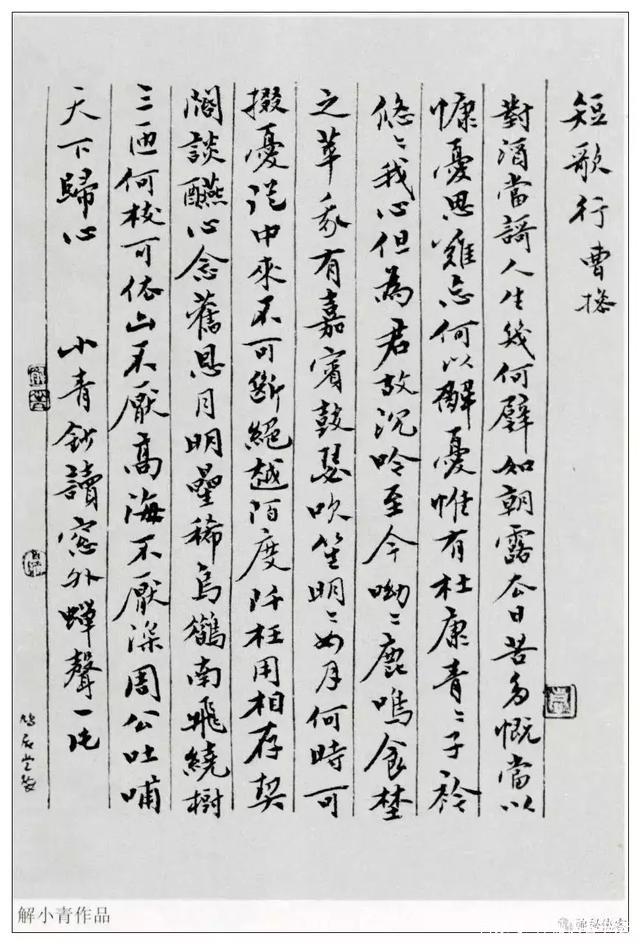 短歌行 曹操
對酒當謌人生幾何譬如朝露去日苦多慨當以
慷憂思難忘何以解憂惟有杜康青〻子衿
悠〻我心但為君故沉吟至今呦〻鹿鳴食埜
之苹我有嘉賓鼓瑟吹笙明〻如月何時可
掇憂從中來不可斷絕越陌度阡枉用相存契
闊談醼心念舊恩月明星稀烏鵲南飛繞樹
三匝何枝可依山不厭高海不厭深周公吐哺
天下歸心 小青鈔讀窓外蟬聲一片
鳩居堂製
解小青作品